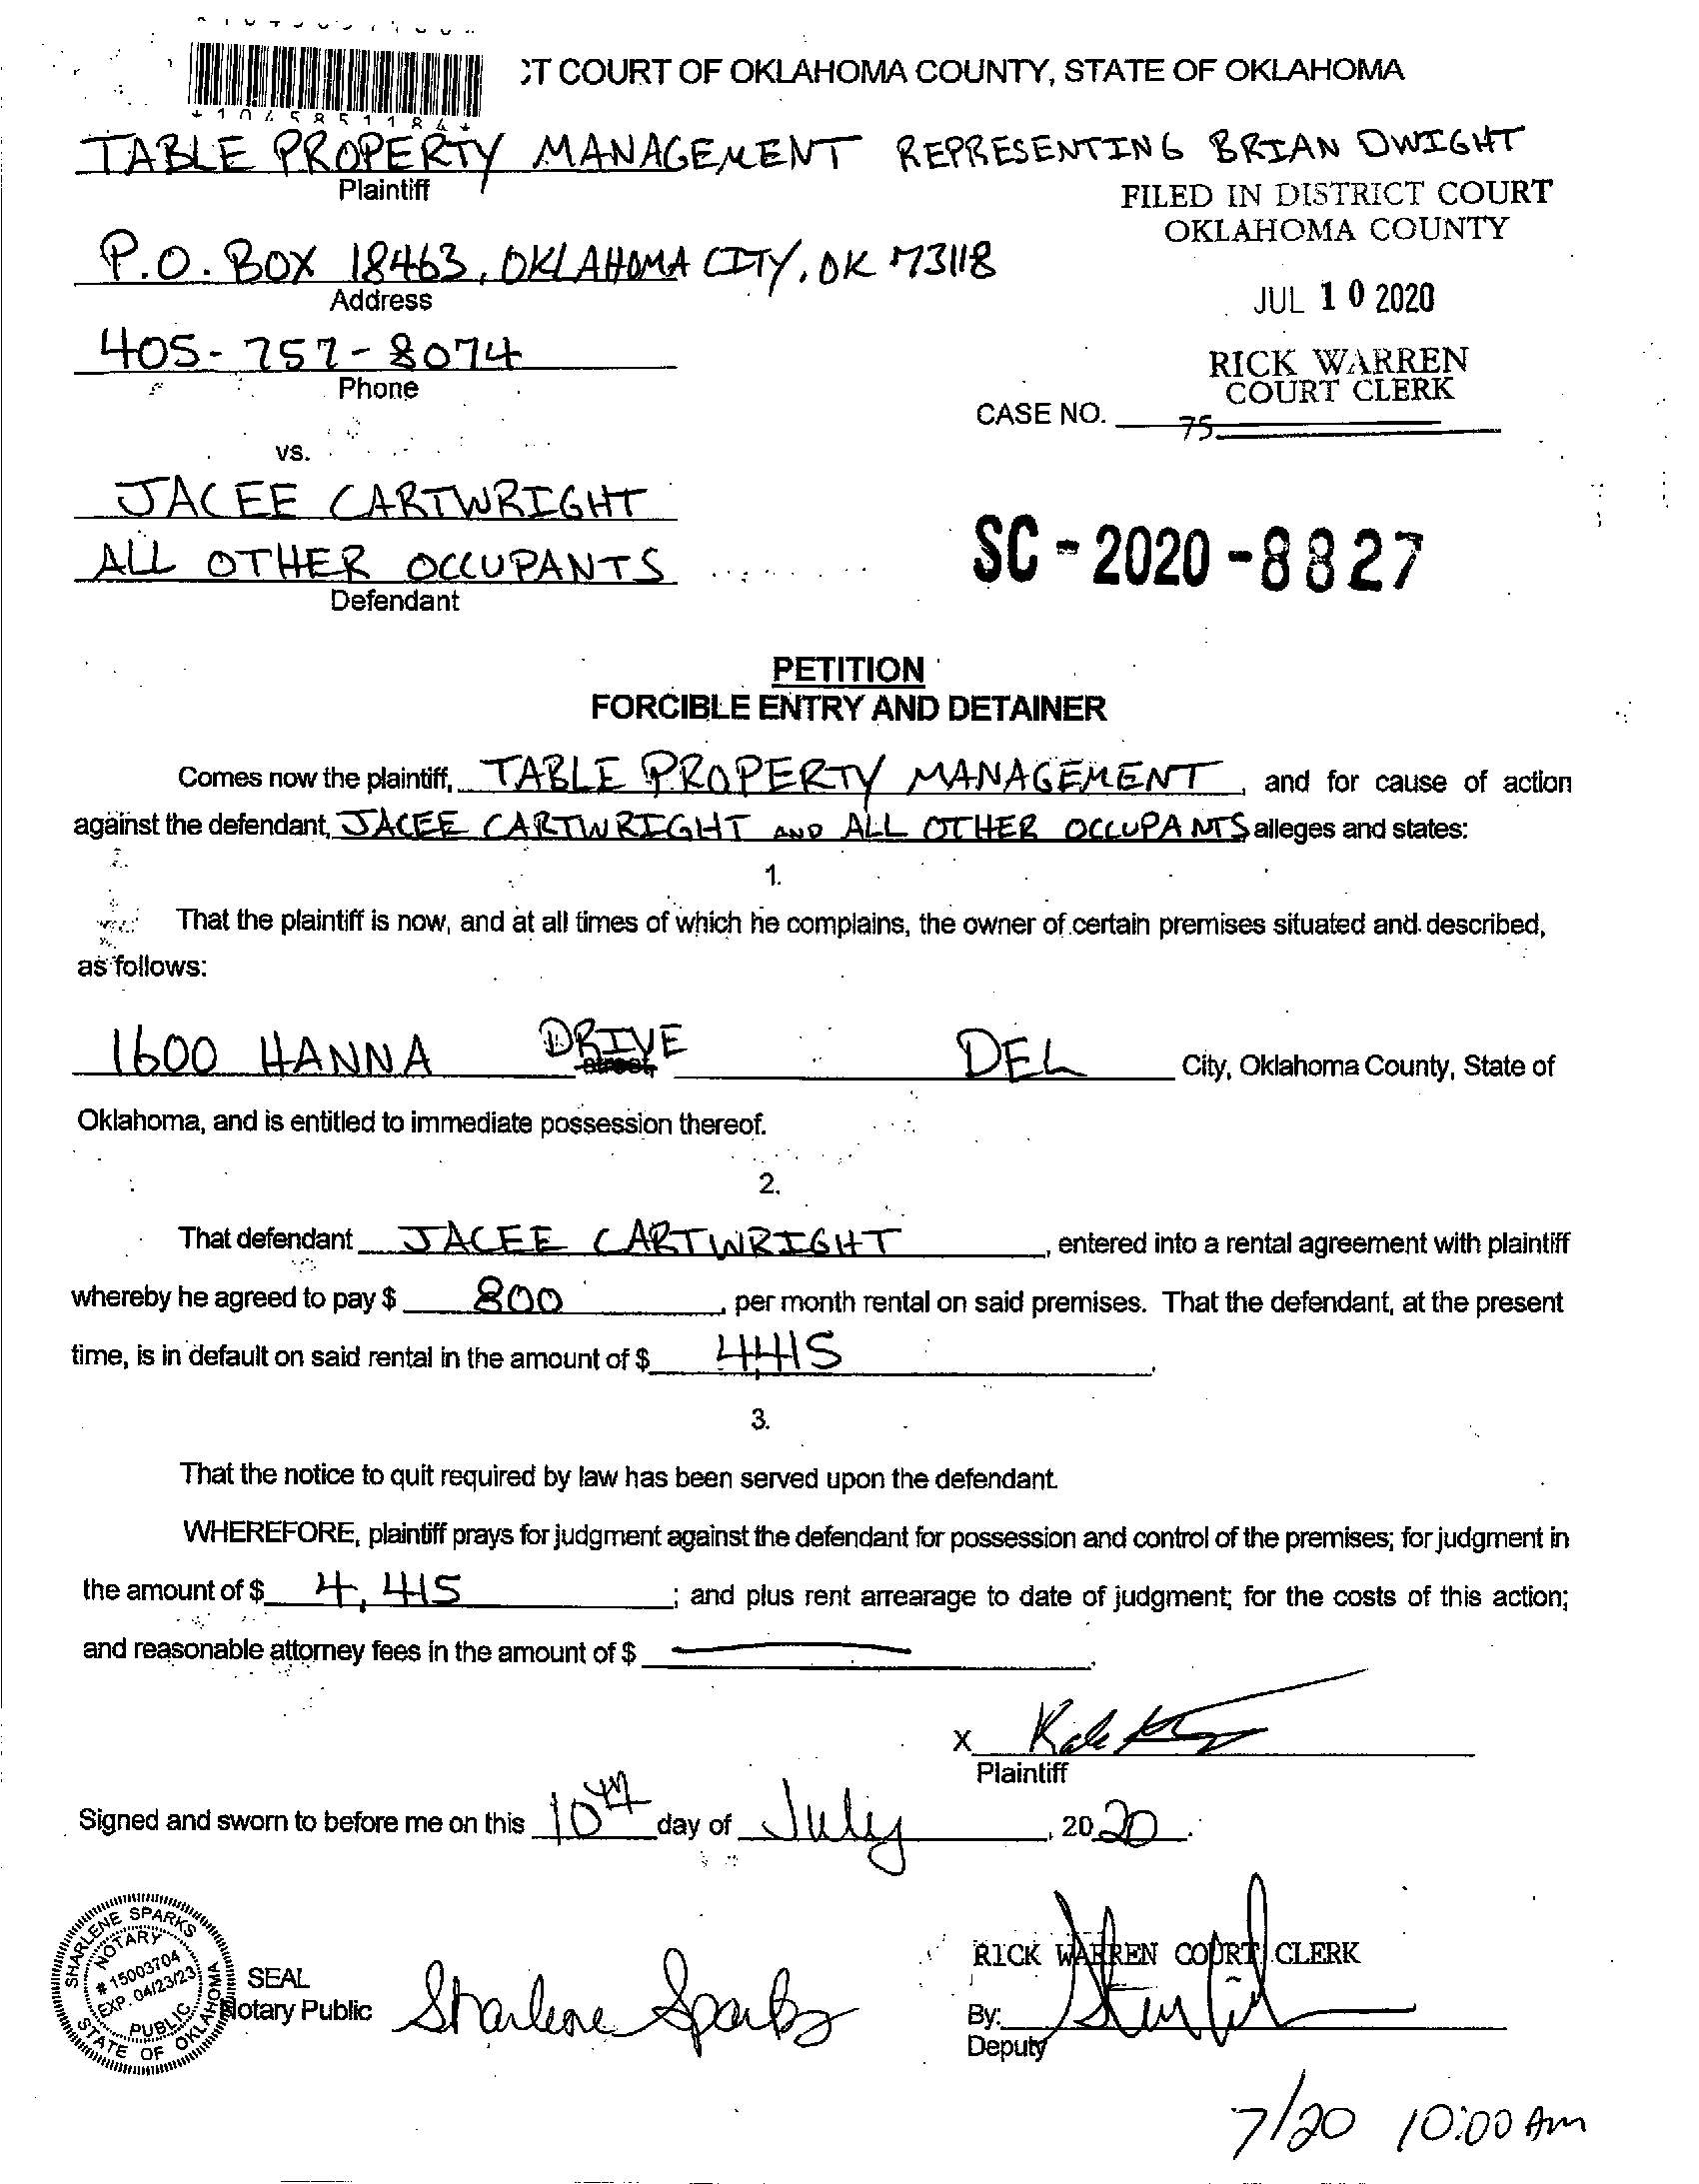 CT COURT OF OKLAHOMA COUNTY, STATE OF OKLAHOMA
*1045851184*
TABLE PROPERTY MANAGEMENT REPRESENTING BRIAN DWIGHT
Plaintiff
FILED IN DISTRICT COURT
OKLAHOMA COUNTY
P.O. BOX 18463, OKLAHOMA CITY, OK 73118
Address
JUL 10 2020
405-757-8074
Phone
RICK WARREN
COURT CLERK
CASE NO. 75
vs.
JACEE CARTWRIGHT
ALL OTHER OCCUPANTS
Defendant
SC-2020-8827
PETITION
FORCIBLE ENTRY AND DETAINER
Comes now the plaintiff, TABLE PROPERTY MANAGEMENT, and for cause of action
against the defendant, JACEE CARTWRIGHT AND ALL OTHER OCCUPANTS alleges and states:
1.
That the plaintiff is now, and at all times of which he complains, the owner of certain premises situated and described,
as follows:
1600 HANNA DRIVE street DEL City, Oklahoma County, State of
Oklahoma, and is entitled to immediate possession thereof.
2.
That defendant JACEE CARTWRIGHT, entered into a rental agreement with plaintiff
whereby he agreed to pay $ 800, per month rental on said premises. That the defendant, at the present
time, is in default on said rental in the amount of $ 4,415.
3.
That the notice to quit required by law has been served upon the defendant.
WHEREFORE, plaintiff prays for judgment against the defendant for possession and control of the premises; for judgment in
the amount of $ 4,415; and plus rent arrearage to date of judgment; for the costs of this action;
and reasonable attorney fees in the amount of $ —.
X
Plaintiff
Signed and sworn to before me on this 10th day of July, 2020.
SHARLENE SPARKS
NOTARY
# 15003704
EXP. 04/23/23
PUBLIC
STATE OF OKLAHOMA
SEAL
Notary Public Sharlene Sparks
RICK WARREN COURT CLERK
By:
Deputy
7/20 10:00 Am